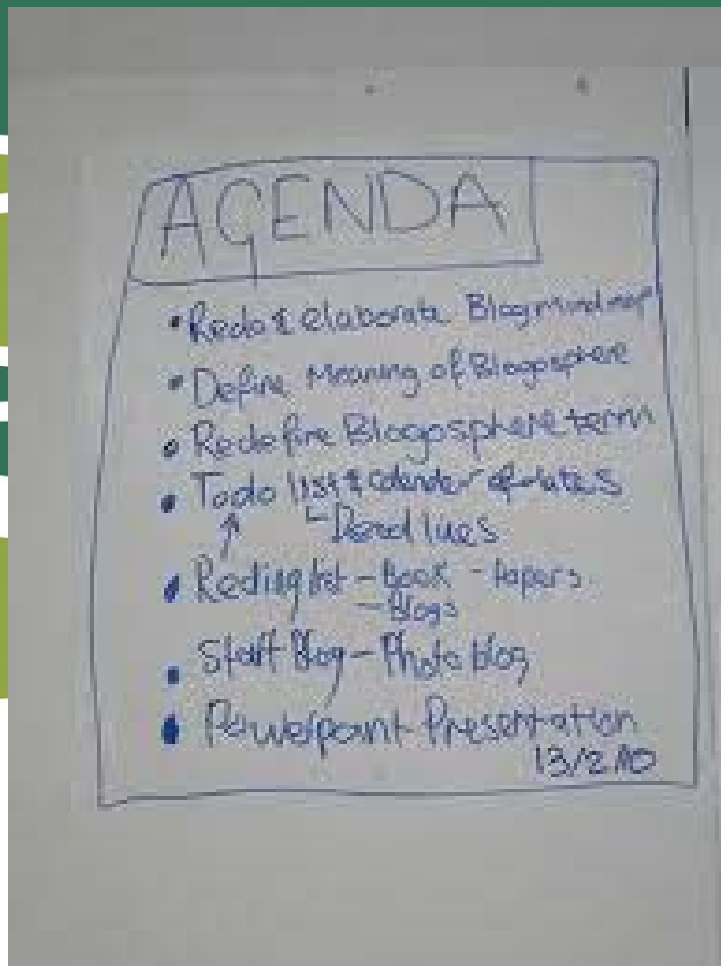 AGENDA
• Redo & elaborate Blog mindmap
• Define Meaning of Blogosphere
• Redefine Blogosphere term
• Todo list & Calender of dates
Deadlines
• Reding list - Book - Papers
- Blogs
• Start Blog - Photo blog
• Powerpoint Presentation
13/2/10